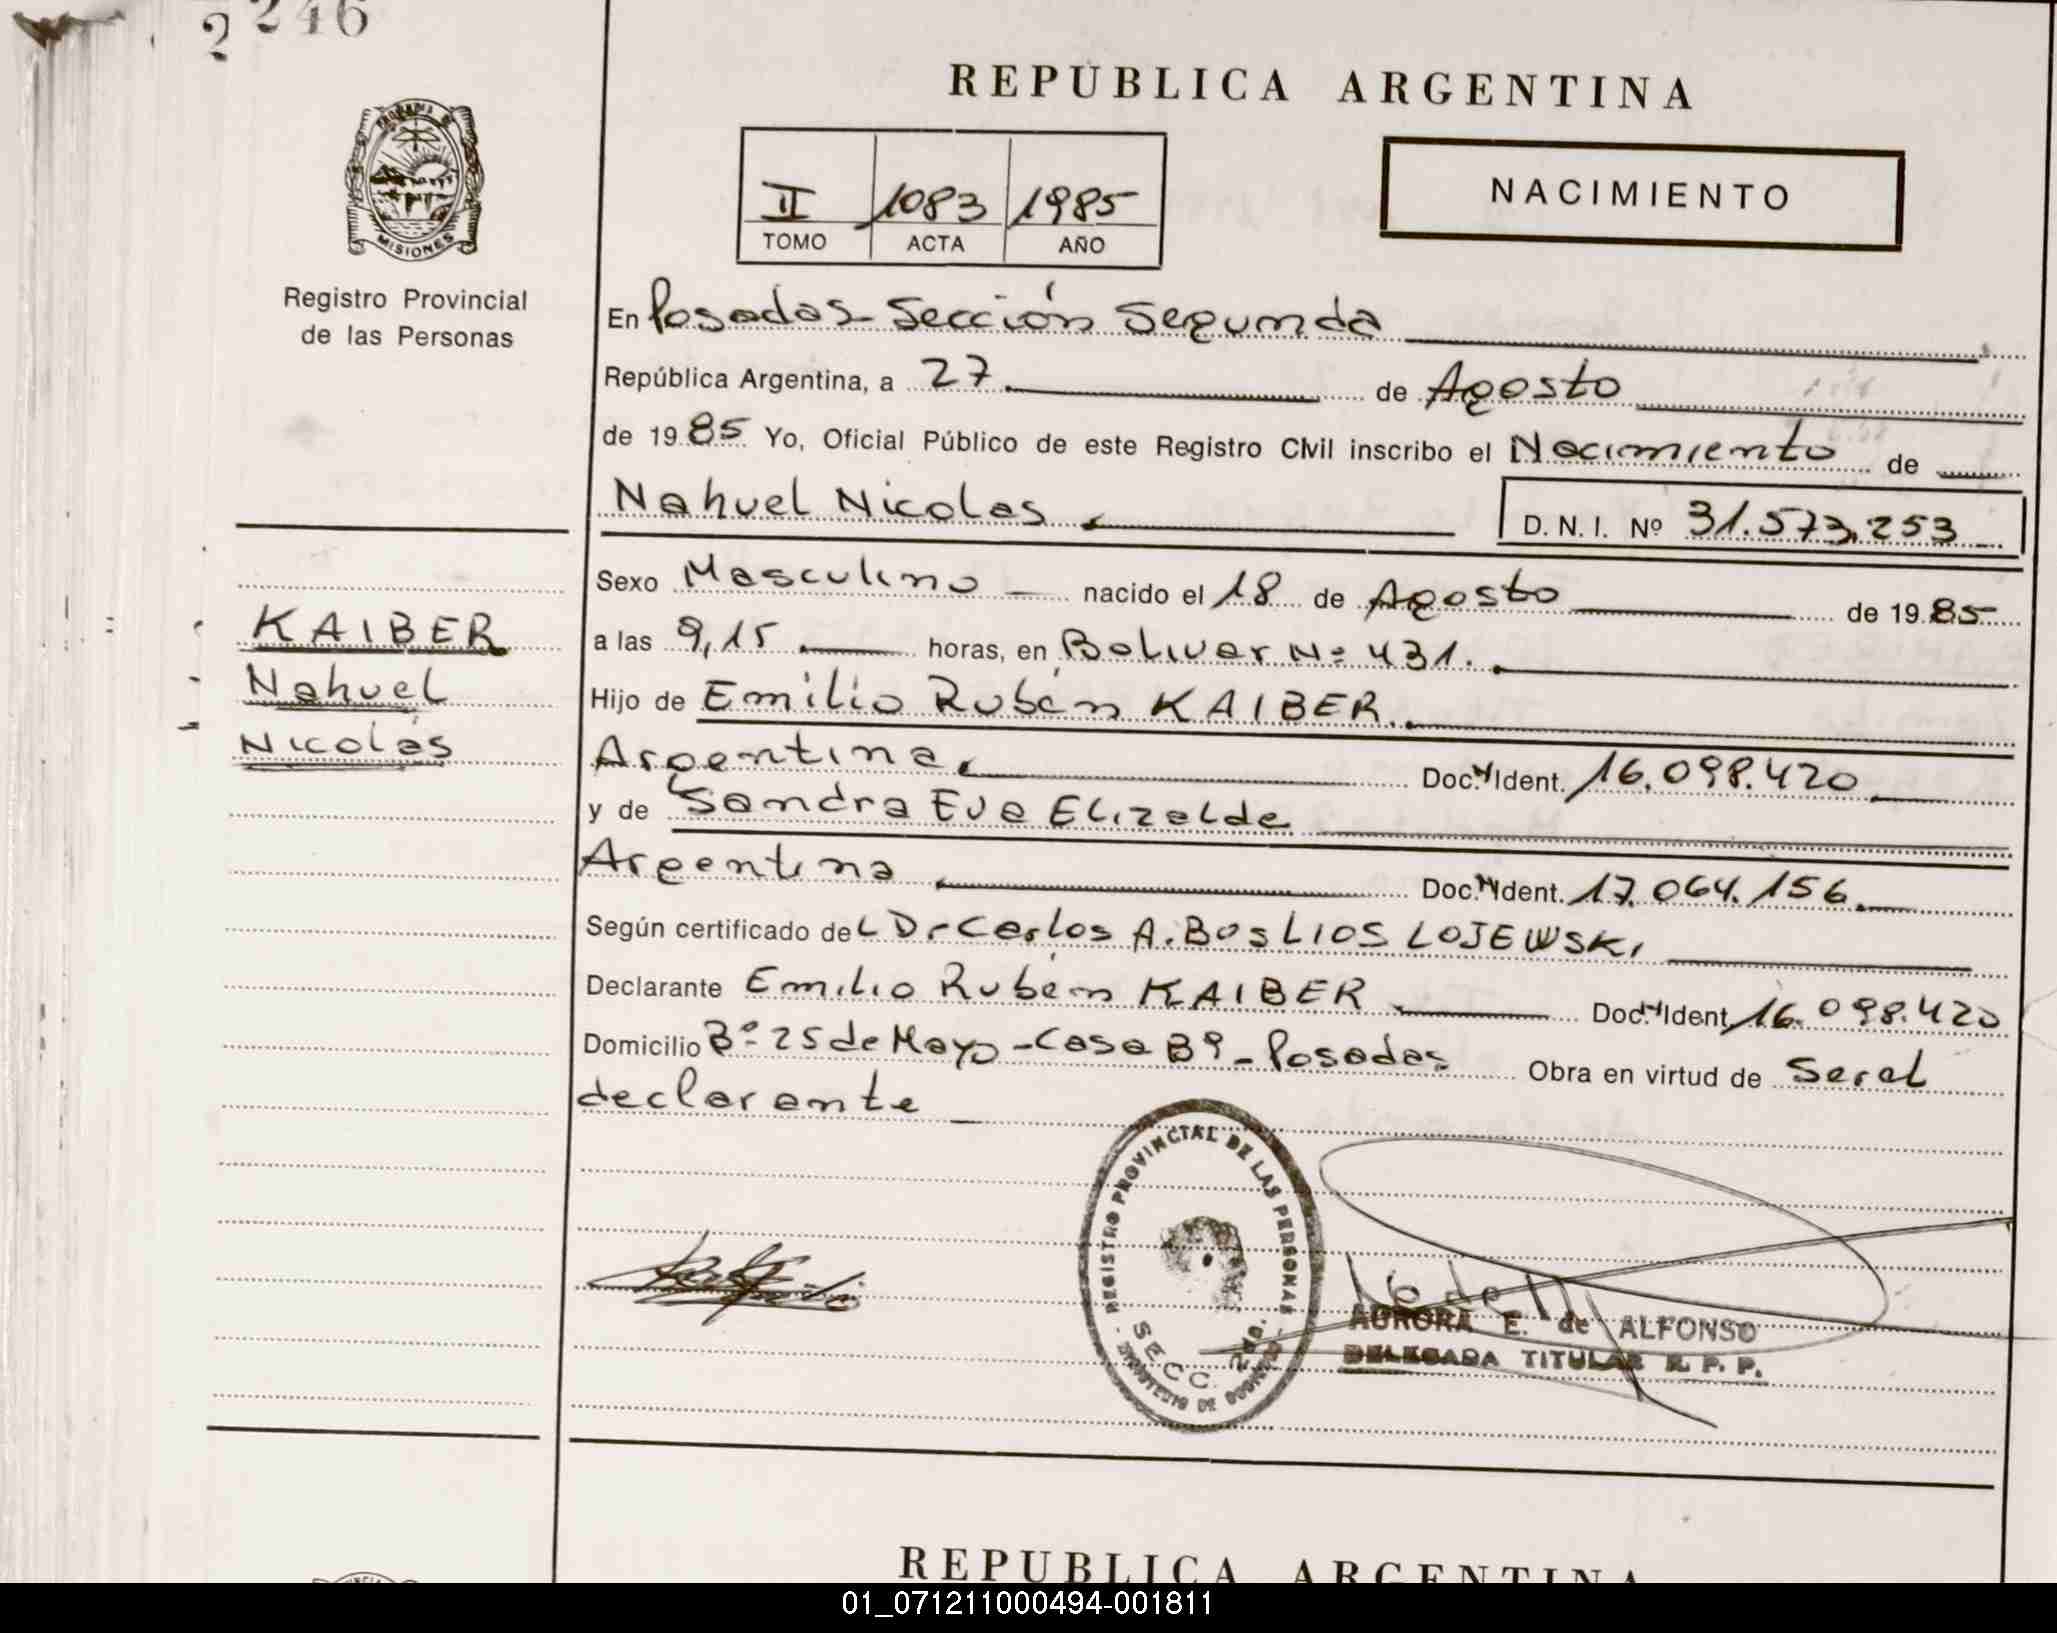 2246
REPUBLICA ARGENTINA
PROVINCIA DE
MISIONES
Registro Provincial
de las Personas
II 1083 1985
TOMO ACTA AÑO
NACIMIENTO
En Posadas Sección Segunda
República Argentina, a 27 de Agosto
de 1985 Yo, Oficial Público de este Registro Civil inscribo el Nacimiento de
Nahuel Nicolas
D. N. I. Nº 31.573.253
KAIBER
Nahuel
Nicolás
Sexo Masculino nacido el 18 de Agosto de 1985
a las 9,15 horas, en Bolivar Nº 431.
Hijo de Emilio Rubén KAIBER.
Argentina. Doc. Ident. 16.098.420
y de Sandra Eva Elizalde
Argentina Doc. Ident. 17.064.156.
Según certificado del Dr Carlos A. BosLIOS LOJEWSKI
Declarante Emilio Rubén KAIBER Doc. Ident. 16.098.420
Domicilio Bº 25 de Mayo - Casa B9 - Posadas Obra en virtud de Ser el
declarante
REGISTRO PROVINCIAL DE LAS PERSONAS
SECC. 2da.
MINISTERIO DE GOBIERNO
AURORA E. de ALFONSO
DELEGADA TITULAR R. P. P.
REPUBLICA ARGENTINA
01_071211000494-001811